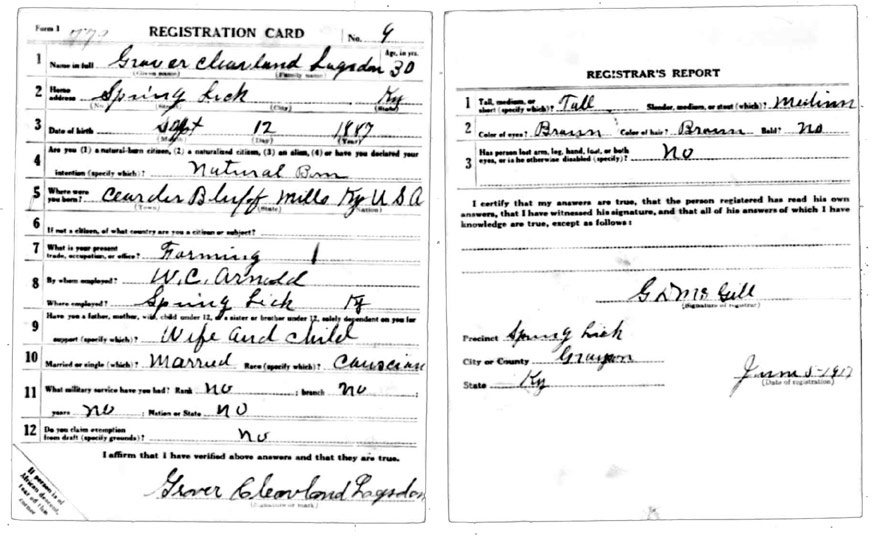 Form 1 779 REGISTRATION CARD No. 9
1 Name in full Grover Clearland Logsdon Age, in yrs. 30
(Given name) (Family name)
2 Home address Spring Lick Ky
(No.) (Street) (City) (State)
3 Date of birth Sept 12 1887
(Month) (Day) (Year)
4 Are you (1) a natural-born citizen, (2) a naturalized citizen, (3) an alien, (4) or have you declared your
intention (specify which)? Natural Born
5 Where were you born? Cearder Bluff Mills Ky U S A
(Town) (State) (Nation)
6 If not a citizen, of what country are you a citizen or subject?
7 What is your present trade, occupation, or office? Farming
8 By whom employed? W. C. Arnold
Where employed? Spring Lick Ky
9 Have you a father, mother, wife, child under 12, or a sister or brother under 12, solely dependent on you for
support (specify which)? Wife and child
10 Married or single (which)? Married Race (specify which)? Causcian
11 What military service have you had? Rank no ; branch no ;
years no ; Nation or State no
12 Do you claim exemption from draft (specify grounds)? no
I affirm that I have verified above answers and that they are true.
Grover Cleavland Logsdon
(Signature or mark)
If person is of
African descent,
tear off this
corner
REGISTRAR'S REPORT
1 Tall, medium, or short (specify which)? Tall Slender, medium, or stout (which)? Medium
2 Color of eyes? Brown Color of hair? Brown Bald? no
3 Has person lost arm, leg, hand, foot, or both
eyes, or is he otherwise disabled (specify)? No
I certify that my answers are true, that the person registered has read his own
answers, that I have witnessed his signature, and that all of his answers of which I have
knowledge are true, except as follows:
G D McGill
(Signature of registrar)
Precinct Spring Lick
City or County Grayson
State Ky
June 5-1917
(Date of registration)